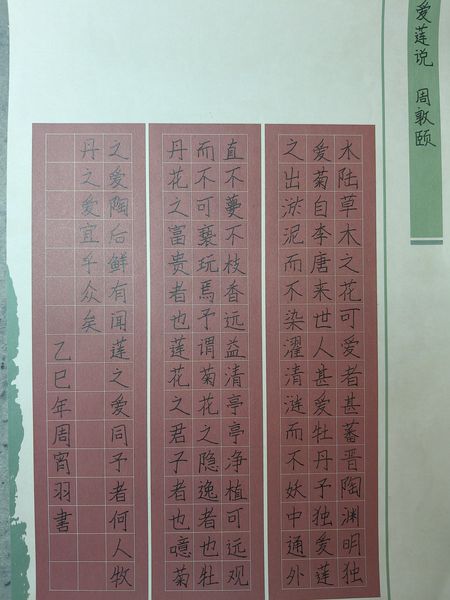 爱莲说 周敦颐
水陆草木之花可爱者甚蕃晋陶渊明独
爱菊自李唐来世人甚爱牡丹予独爱莲
之出淤泥而不染濯清涟而不妖中通外
直不蔓不枝香远益清亭亭净植可远观
而不可亵玩焉予谓菊花之隐逸者也牡
丹花之富贵者也莲花之君子者也噫菊
之爱陶后鲜有闻莲之爱同予者何人牧
丹之爱宜乎众矣
乙巳年周宵羽書